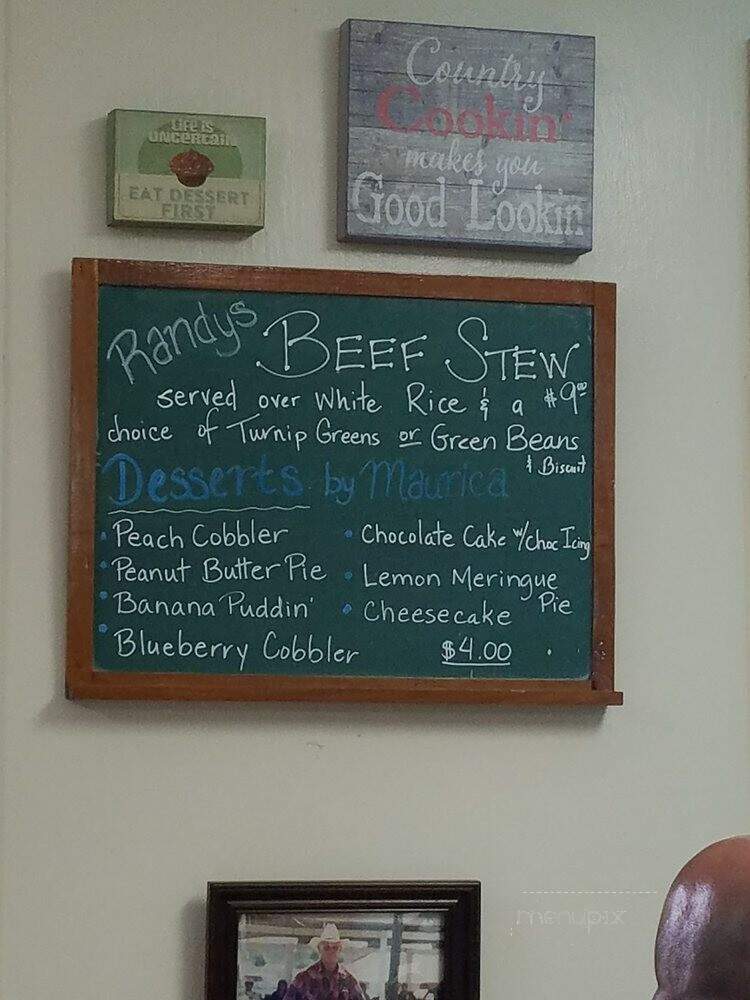 Life is
Uncertain
EAT DESSERT
FIRST
Country
Cookin'
makes you
Good Lookin
Randys BEEF STEW
served over White Rice & a $9.00
choice of Turnip Greens or Green Beans
& Biscuit
Desserts by Maurica
• Peach Cobbler
• Peanut Butter Pie
• Banana Puddin'
• Blueberry Cobbler
• Chocolate Cake w/choc Icing
• Lemon Meringue
Pie
• Cheesecake
$4.00
menupix